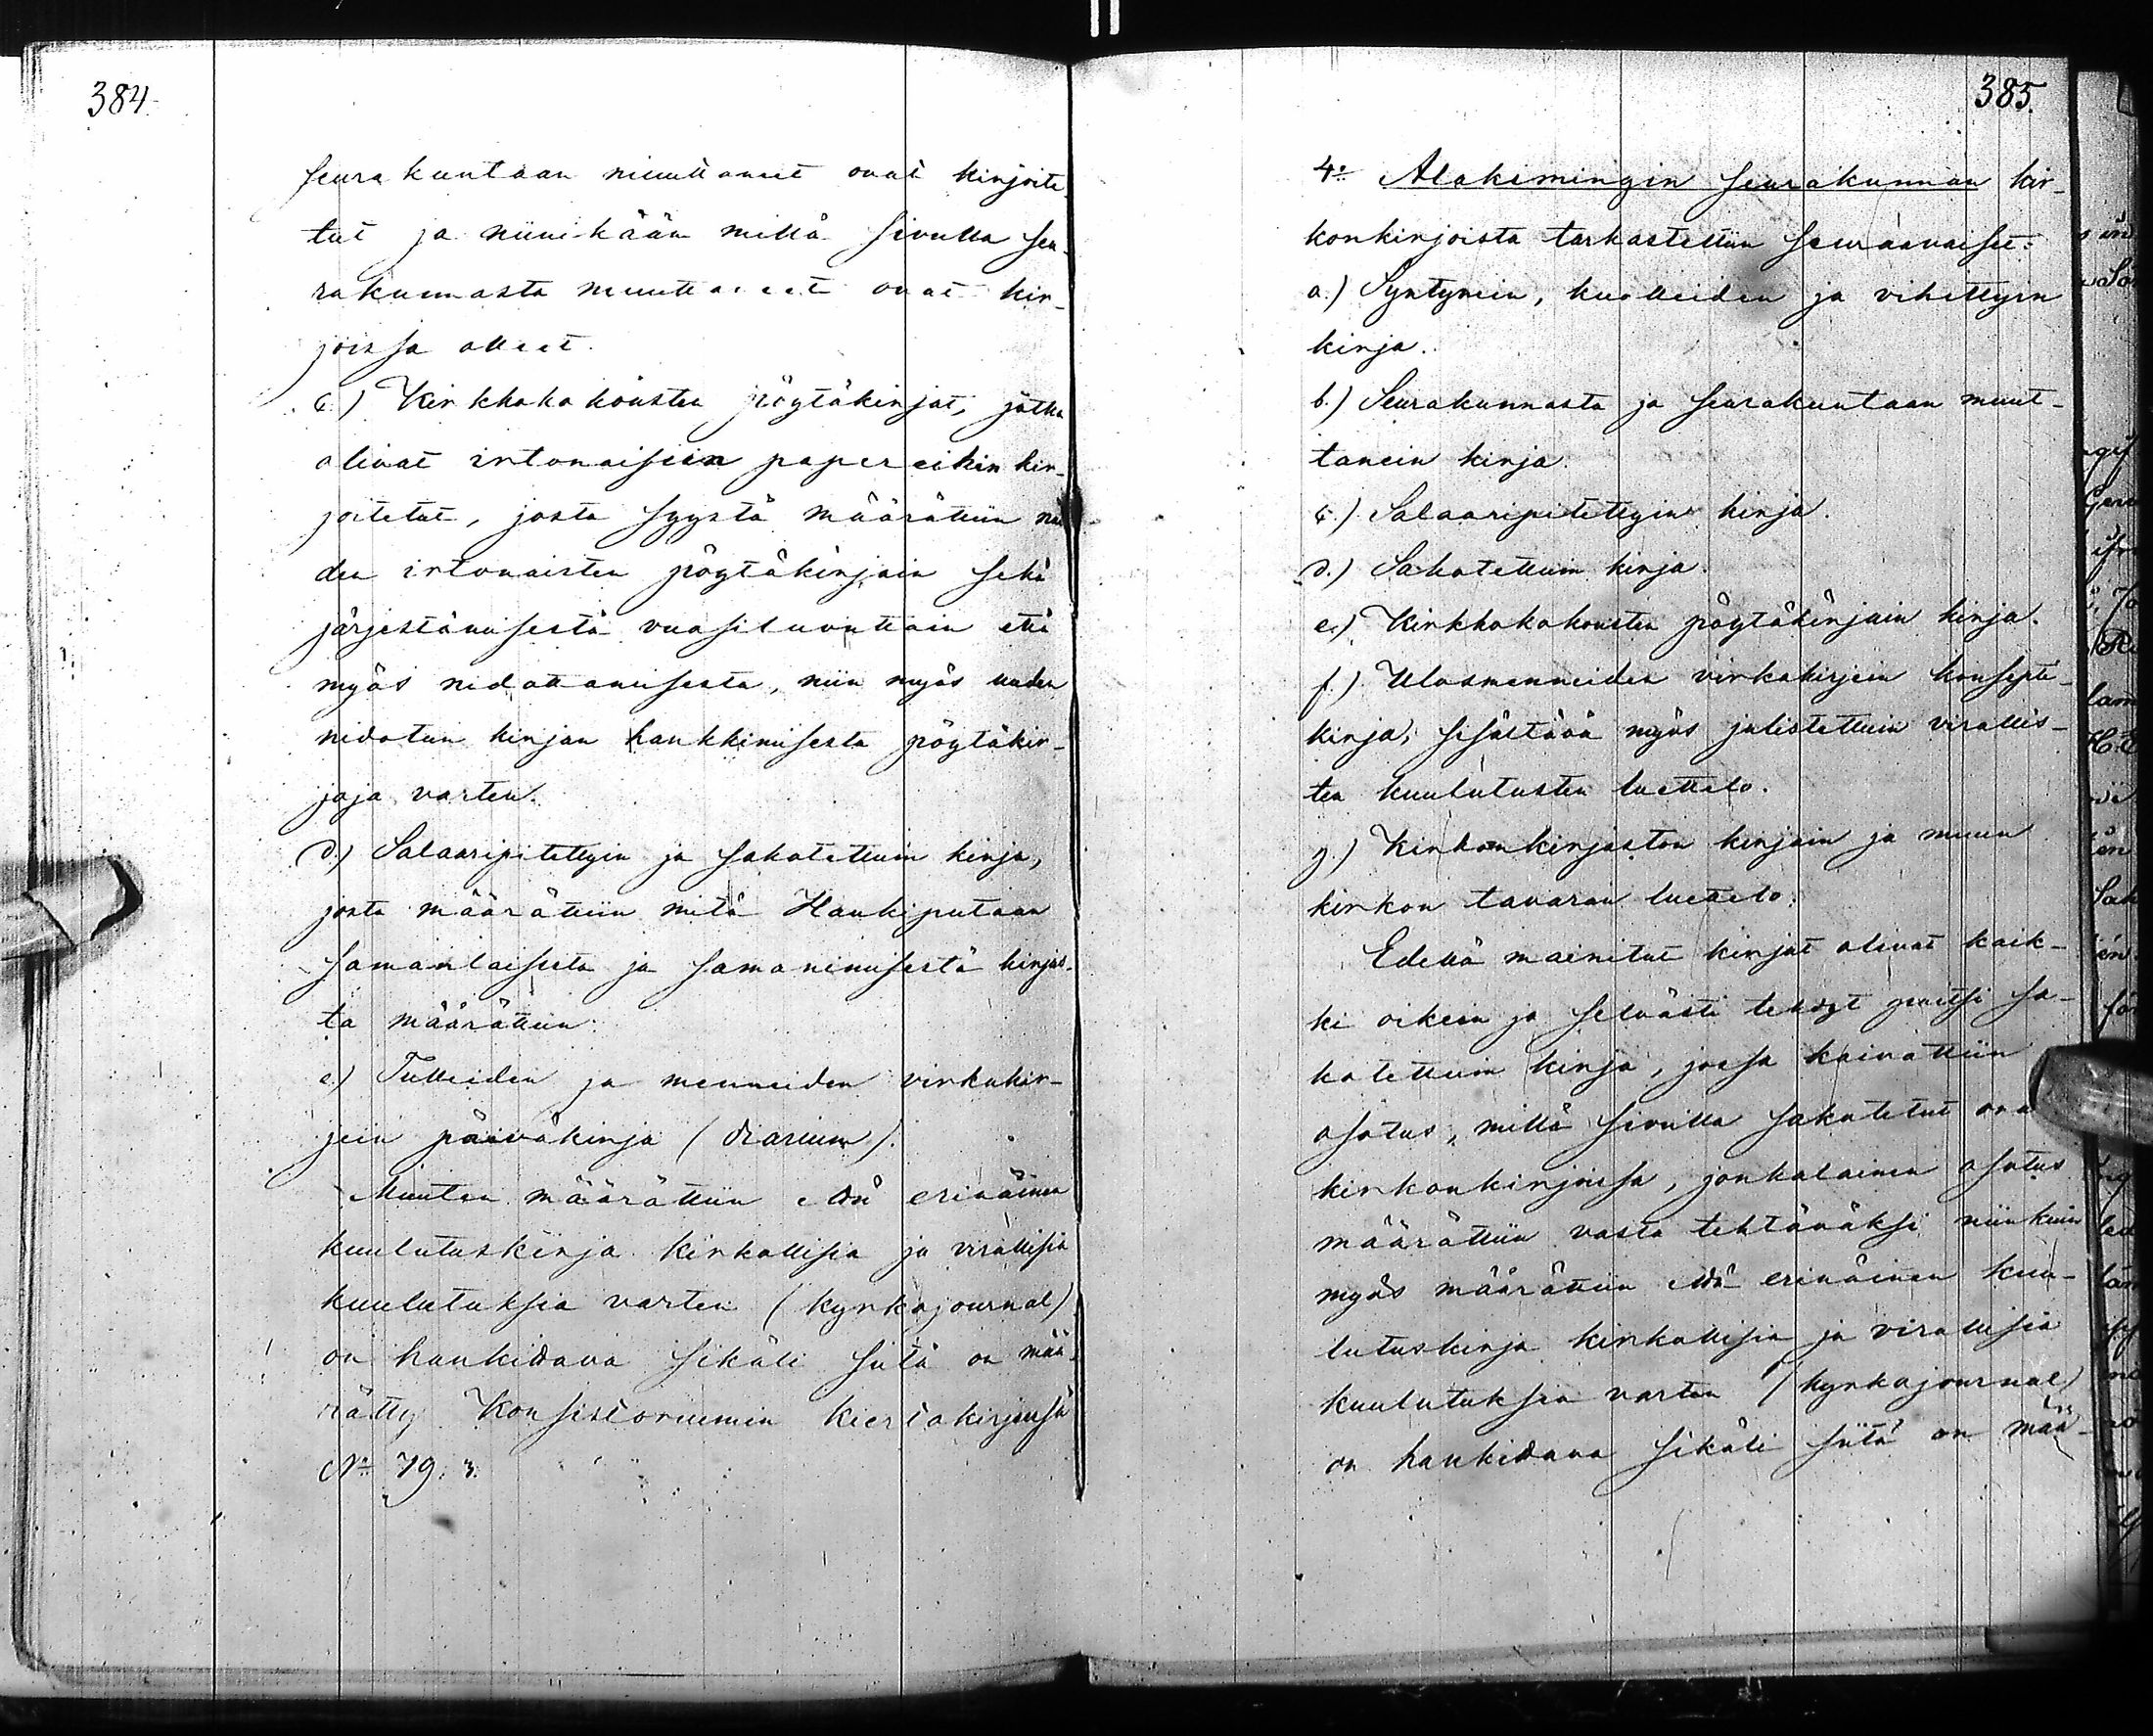 384.
seurakuntaan muuttaneet ovat kirjoite-
tut ja niinikään millä sivulla seu-
rakunnasta muuttaneet ovat kir-
joissa olleet.
c.) Kirkkokokousten pöytäkirjat, jotka
olivat irtonaisiin papereihin kir-
joitetut, josta syystä määrättiin näi
den irtonaisten pöytäkirjain sekä
järjestämisestä vuosiluvuttain että
myös nidottamisesta, niin myös uuden
nidotun kirjan hankkimisesta pöytäkir-
joja varten.
d.) Salaaripitettyin ja sakotettuin kirja,
josta määrättiin mitä Haukiputaan
samanlaisesta ja samanimisestä kirjas-
ta määrättiin.
e.) Tulleiden ja menneiden virkakir-
jein päiväkirja (diarium).
Muuten määrättiin että erinäinen
kuulutuskirja kirkollisia ja virallisia
kuulutuksia varten (kyrkojournal)
on hankittava sikäli siitä on mää-
rätty Konsistoriumin kiertokirjeessä
No 79. 3.
385.
4o Alakimingin seurakunnan kir-
konkirjoista tarkastettiin seuraavaiset:
a.) Syntynein, kuolleiden ja vihittyin
kirja.
b.) Seurakunnasta ja seurakuntaan muut-
tanein kirja.
c.) Salaaripitettyin kirja.
d.) Sakotettuin kirja.
e.) Kirkkokokousten pöytäkirjain kirja.
f.) Ulosmenneiden virkakirjein konsepti-
kirja, sisältävä myös julistettuin virallis-
ten kuulutusten luettelo.
g.) Kirkonkirjaston kirjain ja muun
kirkon tavaran luettelo.
Edellä mainitut kirjat olivat kaik-
ki oikein ja selvästi tehdyt paitsi sa-
kotettuin kirja, jossa kaivattiin
osotus, millä sivulla sakotetut ovat
kirkonkirjoissa, jonkalainen osotus
määrättiin vasta tehtäväksi niinkuin
myös määrättiin että erinäinen kuu-
lutuskirja kirkollisia ja virallisia
kuulutuksia varten (kyrkojournal)
on hankittava sikäli siitä on mää-